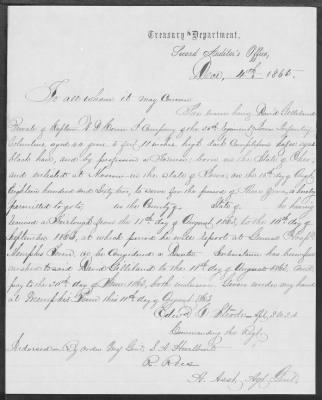 Treasury Department,
Second Auditor's Office,
4th, 1865.
To all whom it may Concern
The bearer hereof David Gilliland
Private of Captain Company of the Regiment Iowa Infantry
Volunteers, aged years 5 feet 11 inches high, dark Complexion hazel eyes
black hair, and by profession a Farmer; born in the State of Ohio;
and enlisted at in the state of Iowa, on the day
Eighteen hundred and Sixty two, to serve for the period of Three years, is hereby
permitted to go to in the County of State of he having
received a Furlough from the 11th day of August, 1863, to the 10th day of
September 1863, at which period he will report at General Hospl
Memphis Tenn, or be considered a Deserter. Subsistence has been
furnished to said David Gilliland to the 11th day of August 1863, and
pay to the day of June 1863, both inclusive. Given under my hand
at Memphis Tenn this 11th day of August 1863
Commanding the Regt.
Endorsed on By order Maj Genl. S. A. Hurlbut
A. Asst. Adjt. Genl.